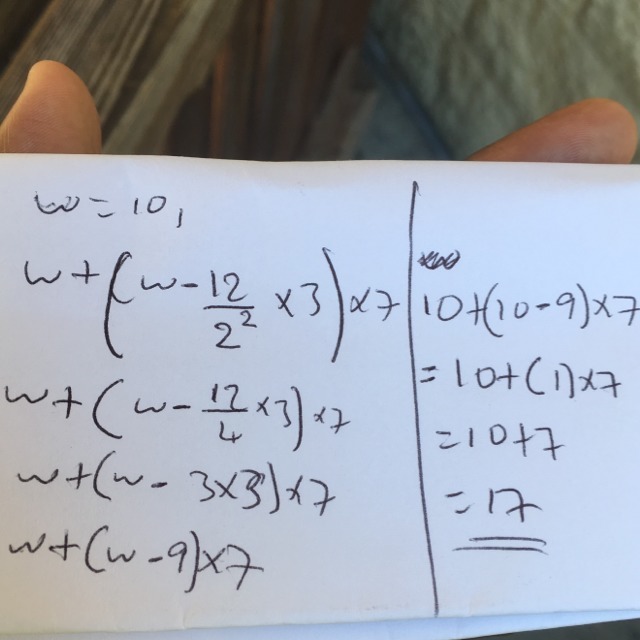 w=10,
w+(w-12/2²×3)×7
w+(w-12/4×3)×7
w+(w-3×3)×7
w+(w-9)×7
10+(10-9)×7
=10+(1)×7
=10+7
=17